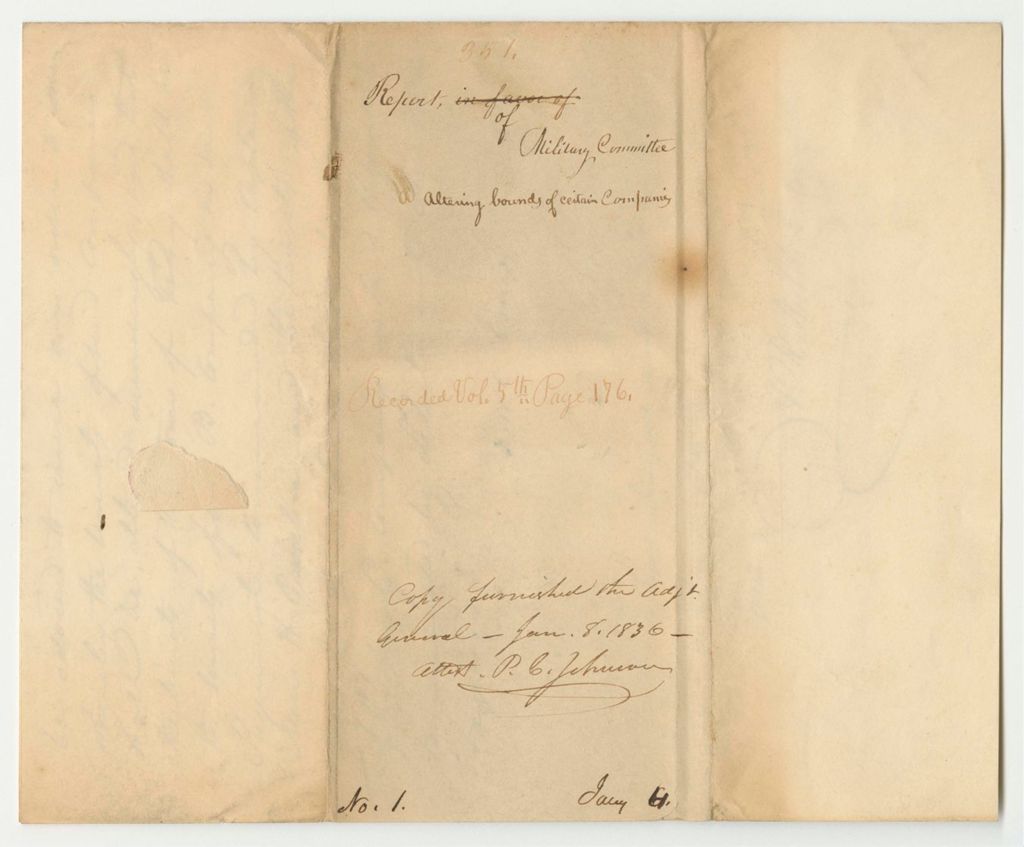 351.
Report, in favor of
of
Military Committee
Altering bounds of certain Companies
Recorded Vol. 5th Page 176.
Copy furnished the Adjt.
General – Jan. 8. 1836 –
Attest. P. C. Johnson
No. 1.
Jany 4.